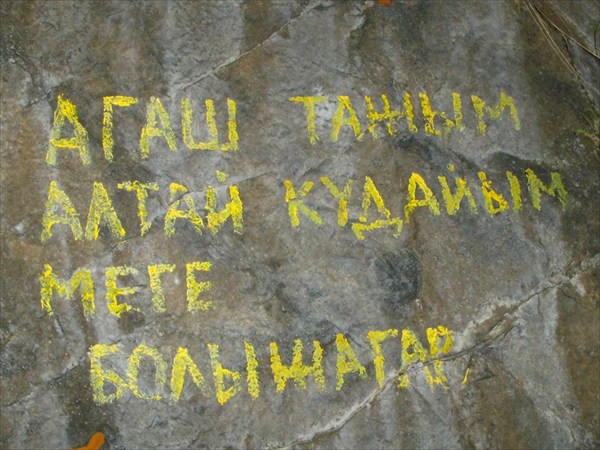 АГАШ ТАЖЫМ
АЛТАЙ КУДАЙЫМ
МЕГЕ
БОЛЫЖАГАР